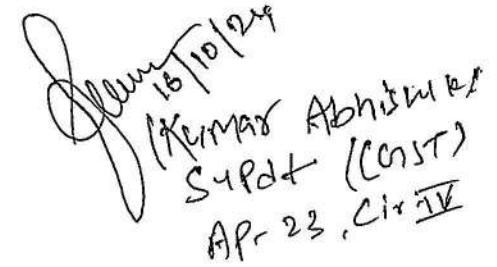 16/10/24
(Kumar Abhishek)
Supdt (CGST)
Ap- 23, Cir IV